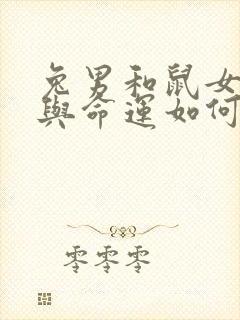 兔男和鼠女
與命運如何
零零零